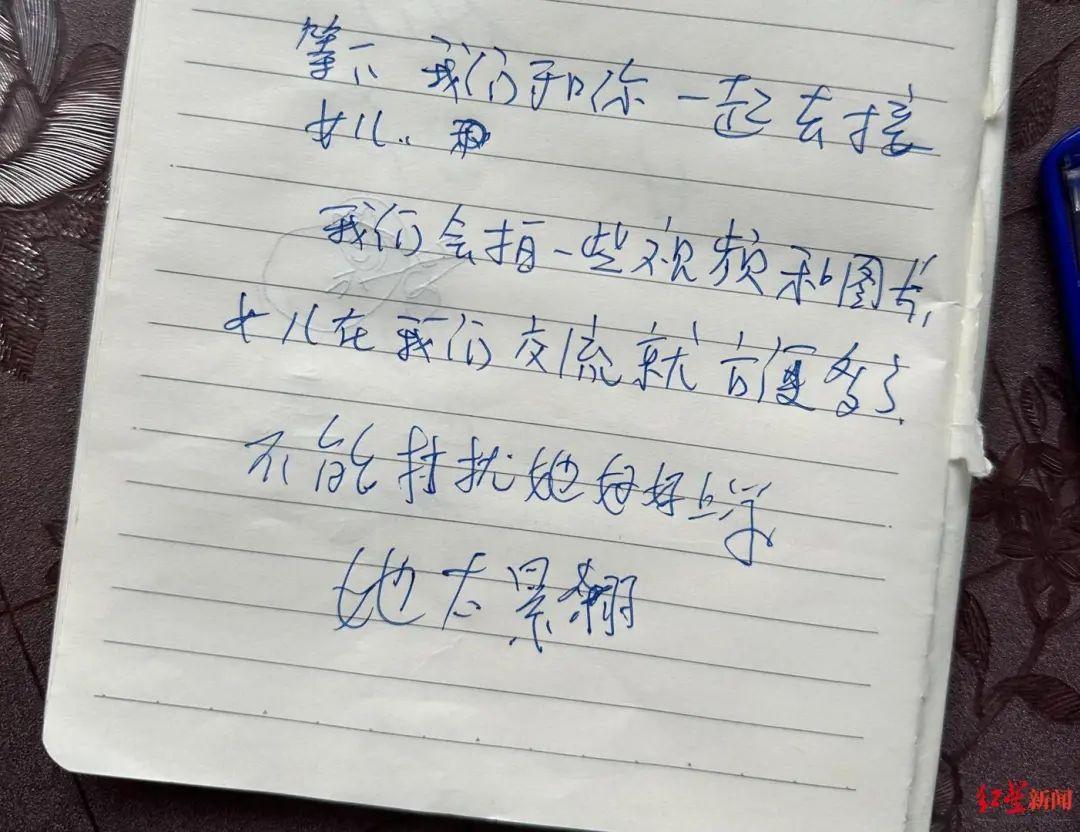 等下 我们和你一起去接
女儿..
我们会拍一些视频和图片,
女儿在我们交流就方便多了.
不能打扰她好好上学
她太累
红星新闻